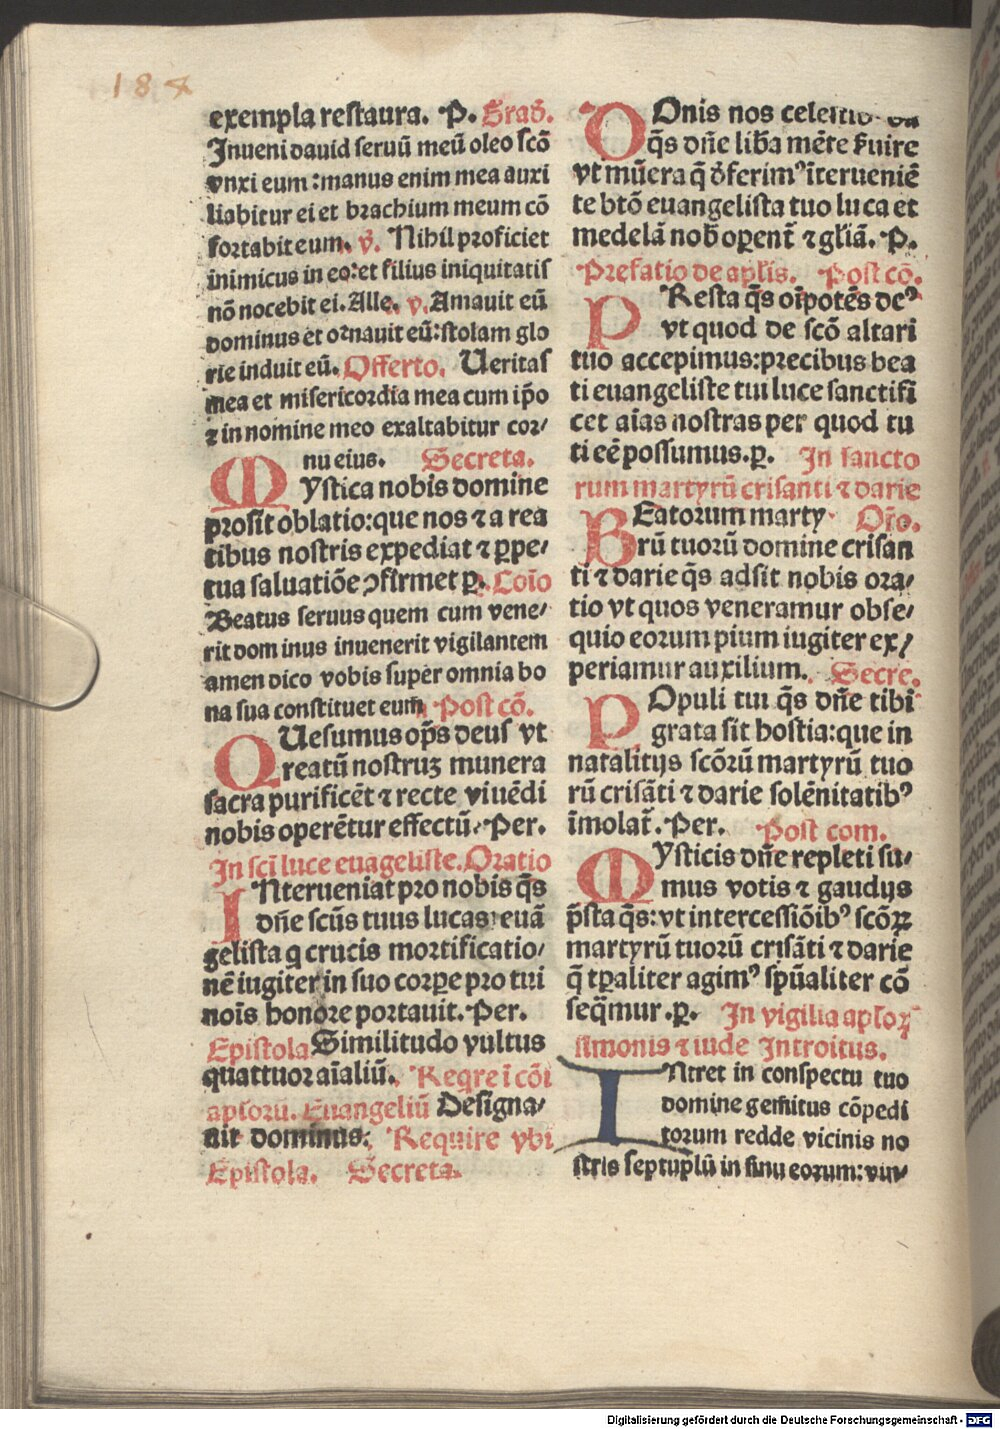 184
exempla restaura. P. Grad̄.
Inueni dauid seruū meū oleo scō
vnxi eum: manus enim mea auxi
liabitur ei et brachium meum cō
fortabit eum. v̄. Nihil proficiet
inimicus in eo: et filius iniquitatis
nō nocebit ei. Alle. v. Amauit eū
dominus et ornauit eū: stolam glo
rie induit eū. Offerto. Ueritas
mea et misericordia mea cum ip̄o
⁊ in nomine meo exaltabitur cor/
nu eius. Secreta.
MYstica nobis domine
prosit oblatio: que nos ⁊ a rea
tibus nostris expediat ⁊ ꝑpe/
tua saluatiōe ꝯfirmet ꝑ. Cōio
Beatus seruus quem cum vene/
rit dominus inuenerit vigilantem
amen dico vobis super omnia bo
na sua constituet eum Post cō.
QUesumus op̄s deus vt
reatū nostruꝫ munera
sacra purificēt ⁊ recte viuēdi
nobis operētur effectū. Per.
In sc̄i luce euāgeliste. Oratio
INterueniat pro nobis q̄s
dn̄e sc̄us tuus lucas euā
gelista q crucis mortificatio/
nē iugiter in suo corꝑe pro tui
nois̄ honore portauit. Per.
Epistola Similitudo vultus
quattuor aīaliū. Reqre ī cōi
apl̄orū. Euangeliū Designa/
uit dominus. Require vbi
Epistola. Secreta.
DOnis nos celestib
q̄s dn̄e lib̄a mēte ẜuire
vt mūera q̄ ꝺferimꝰ īterueniē
te btō euangelista tuo luca et
medelā nob̄ oꝑent̄ ⁊ gl̄iā. P.
Prefatio de apl̄is. Post cō.
PResta q̄s oīpotēs deꝰ
vt quod de scō altari
tuo accepimus: precibus bea
ti euangeliste tui luce sanctifi
cet aīas nostras per quod tu
ti eē possumus. ꝑ. In sancto
rum martyrū crisanti ⁊ darie
BEatorum marty Or̄o.
rū tuorū domine crisan
ti ⁊ darie q̄s adsit nobis ora/
tio vt quos veneramur obse/
quio eorum pium iugiter ex/
periamur auxilium. Secre.
POpuli tui q̄s dn̄e tibi
grata sit hostia: que in
natalitijs scōrū martyrū tuo
rū crisāti ⁊ darie solēnitatibꝰ
īmolat̄. Per. Post com.
MYsticis dn̄e repleti su/
mus votis ⁊ gaudijs
p̄sta q̄s: vt intercessiōibꝰ scōꝝ
martyrū tuorū crisāti ⁊ darie
q̄ tꝑaliter agimꝰ sp̄ualiter cō
seq̄mur. ꝑ. In vigilia apl̄oꝝ
simonis ⁊ iude Introitus.
INtret in conspectu tuo
domine gemitus cōpedi
torum redde vicinis no
stris septuplū in sinu eorum: vin/
Digitalisierung gefördert durch die Deutsche Forschungsgemeinschaft - DFG